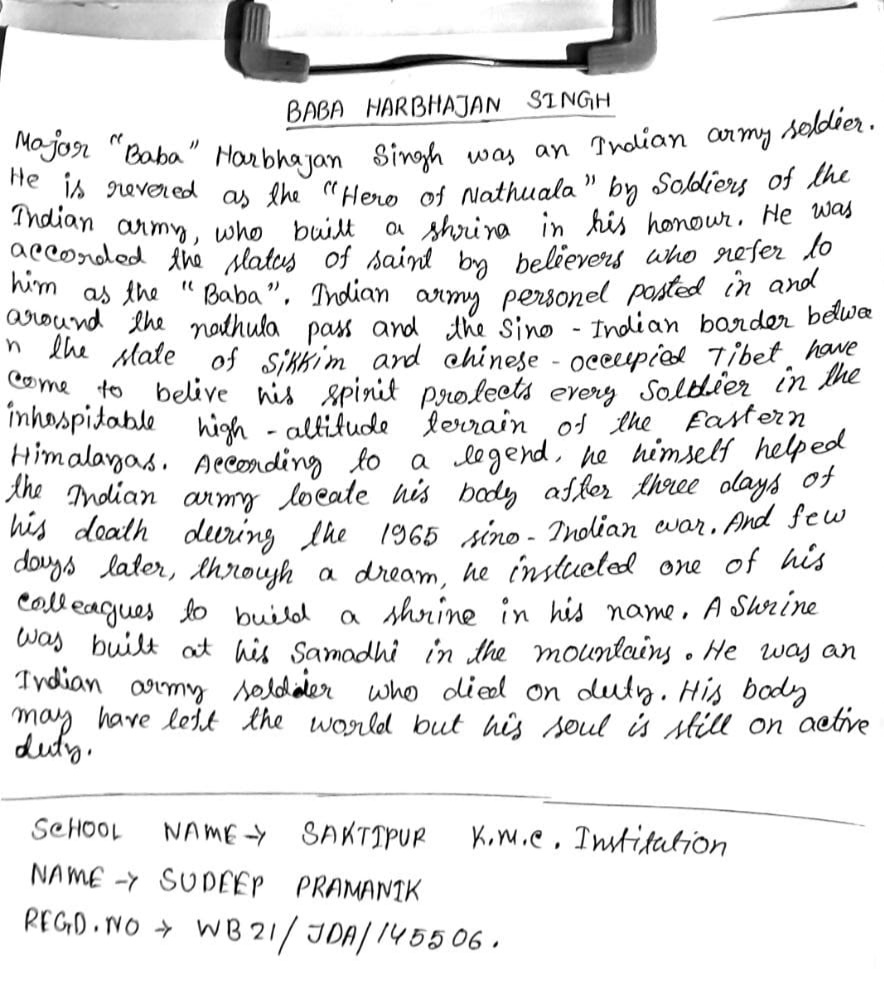 BABA HARBHAJAN SINGH
Major "Baba" Harbhajan Singh was an Indian army soldier.
He is revered as the "Hero of Nathuala" by Soldiers of the
Indian army, who built a shrina in his honour. He was
accorded the status of saint by believers who refer to
him as the "Baba". Indian army personel posted in and
around the nathula pass and the Sino - Indian border betwee
n the state of Sikkim and chinese - occupied Tibet have
come to belive his spirit protects every Soldier in the
inhospitable high - altitude terrain of the Eastern
Himalayas. According to a legend, he himself helped
the Indian army locate his body after three days of
his death during the 1965 sino - Indian war. And few
days later, through a dream, he instucted one of his
colleagues to build a shrine in his name. A Shrine
was built at his Samadhi in the mountains. He was an
Indian army soldier who died on duty. His body
may have left the world but his soul is still on active
duty.
SCHOOL NAME → SAKTIPUR K.M.C. Institation
NAME → SUDEEP PRAMANIK
REGD.NO → WB21/JDA/145506.